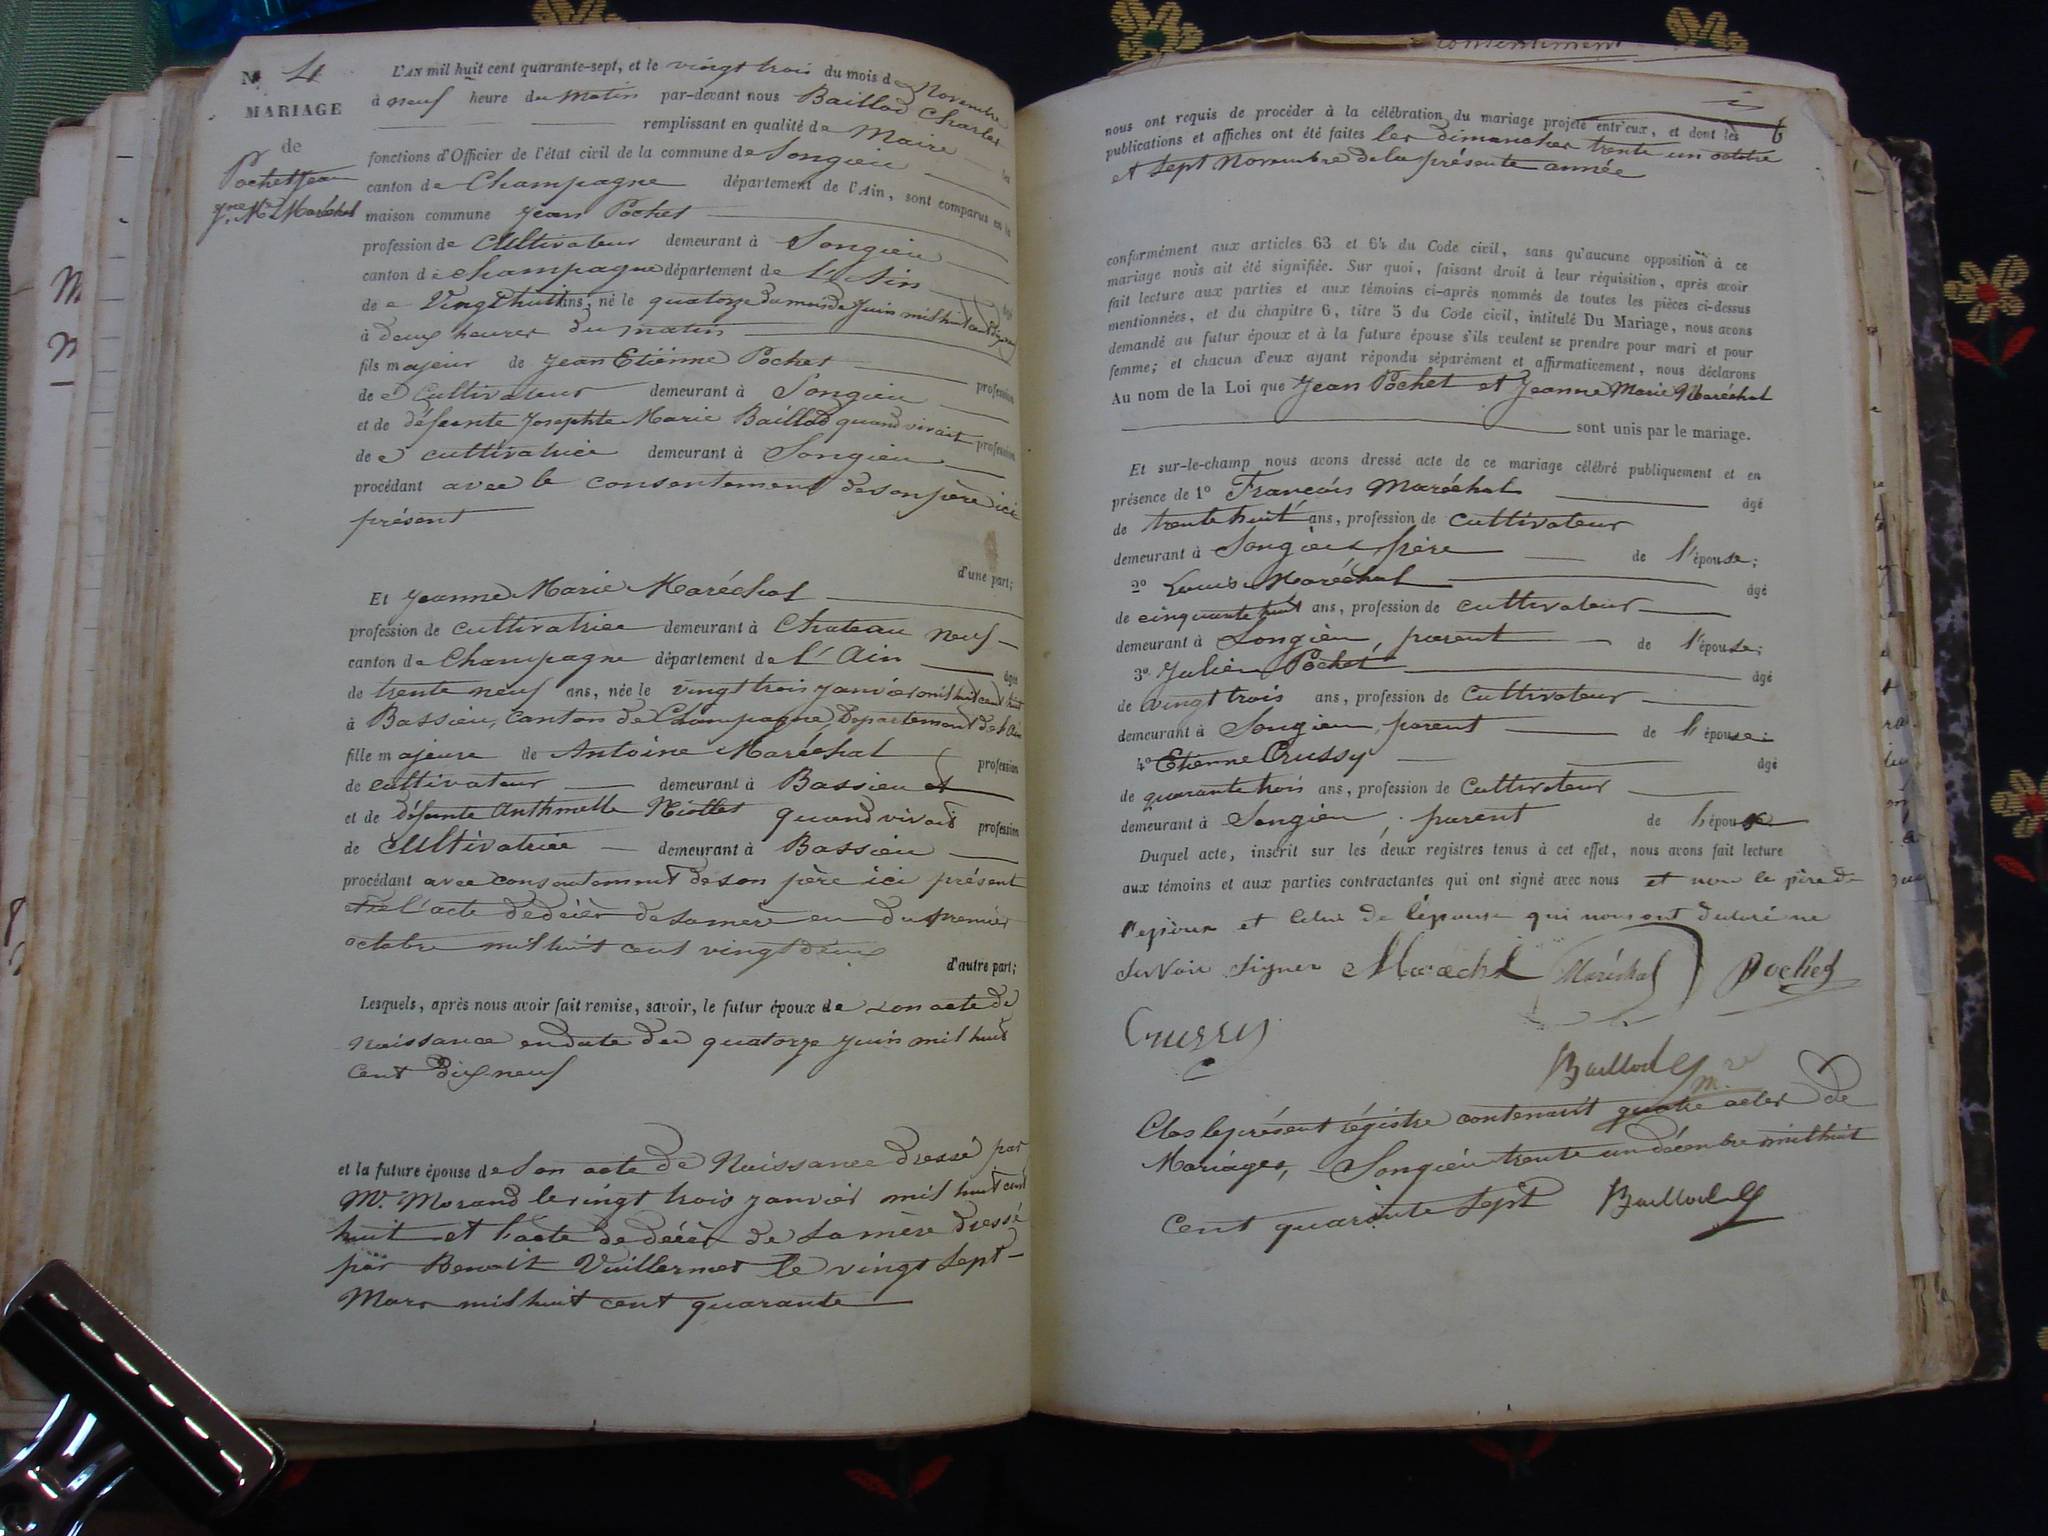 N° 4
MARIAGE
de
Pochet Jean
Jne Mie Maréchal
L'AN mil huit cent quarante-sept, et le vingt trois du mois de Novembre
à neuf heure du matin par-devant nous Baillod Charles
remplissant en qualité de Maire les
fonctions d'Officier de l'état civil de la commune de Songieu
canton de Champagne département de l'Ain, sont comparus en la
maison commune Jean Pochet
profession de Cultivateur demeurant à Songieu
canton de Champagne département de L'Ain âgé
de Vingt huit ans, né le quatorze du mois de Juin mil huit cent dix neuf
à deux heures du matin
fils majeur de Jean Etiënne Pochet profession
de Cultivateur demeurant à Songieu
et de défeunte Josephte Marie Baillod quand vivait profession
de cultivatrice demeurant à Songieu
procédant avec le consentement de son père ici
présent
d'une part;
Et Jeanne Marie Maréchal
profession de cultivatrice demeurant à Chateau neuf
canton de Champagne département de l'Ain âgée
de trente neuf ans, née le vingt trois janvier mil huit cent huit
à Bassieu, canton de Champagne Departement de l'Ain
fille majeure de Antoine Maréchal profession
de cultivateur demeurant à Bassieu et
et de défeunte Anthmelle Niollet quand vivait profession
de Cultivatrice demeurant à Bassieu
procédant avec consentement de son père ici présent
et de l'acte de décèr de sa mère en du premier
octobre mil huit cent vingt deux
d'autre part;
Lesquels, après nous avoir fait remise, savoir, le futur époux de son acte de
Naissance en date du quatorze juin mil huit
cent dix neuf
et la future épouse de Son acte de Naissance dressé par
Mr. Morand le vingt trois janvier mil huit cent
huit et l'acte de décèr de sa mère dressé
par Benoit Vuillermet le vingt sept
Mars mil huit cent quarante
consentement
6
nous ont requis de procéder à la célébration du mariage projeté entr'eux, et dont les
publications et affiches ont été faites les dimancher trente un octobre
et sept Novembre de la présente année
conformément aux articles 63 et 64 du Code civil, sans qu'aucune opposition à ce
mariage nous ait été signifiée. Sur quoi, faisant droit à leur réquisition, après avoir
fait lecture aux parties et aux témoins ci-après nommés de toutes les pièces ci-dessus
mentionnées, et du chapitre 6, titre 5 du Code civil, intitulé Du Mariage, nous avons
demandé au futur époux et à la future épouse s'ils veulent se prendre pour mari et pour
femme; et chacun d'eux ayant répondu séparément et affirmativement, nous déclarons
Au nom de la Loi que Jean Pochet et Jeanne Marie Maréchal
sont unis par le mariage.
Et sur-le-champ nous avons dressé acte de ce mariage célébré publiquement et en
présence de 1° François Maréchal âgé
de trente huit ans, profession de cultivateur
demeurant à Songieu frère de l'épouse;
2° Louis Maréchal âgé
de cinquante huit ans, profession de cultivateur
demeurant à Songieu, parent de l'épouse;
3° Julien Pochet âgé
de vingt trois ans, profession de Cultivateur
demeurant à Songieu, parent de l'épouse;
4° Etienne Crussy âgé
de quarante trois ans, profession de Cultivateur
demeurant à Songieu, parent de l'époux
Duquel acte, inscrit sur les deux registres tenus à cet effet, nous avons fait lecture
aux témoins et aux parties contractantes qui ont signé avec nous et non le père de
l'epoux et celui de l'épouse qui nous ont déclaré ne
savoir signer Marechl Maréchal Pochet
Crussy
Baillod Ch
mre
Clos le présent régistre contenant quatre actes de
Mariages, Songieu trente un décembre mil huit
Cent quarante Sept Baillod Ch